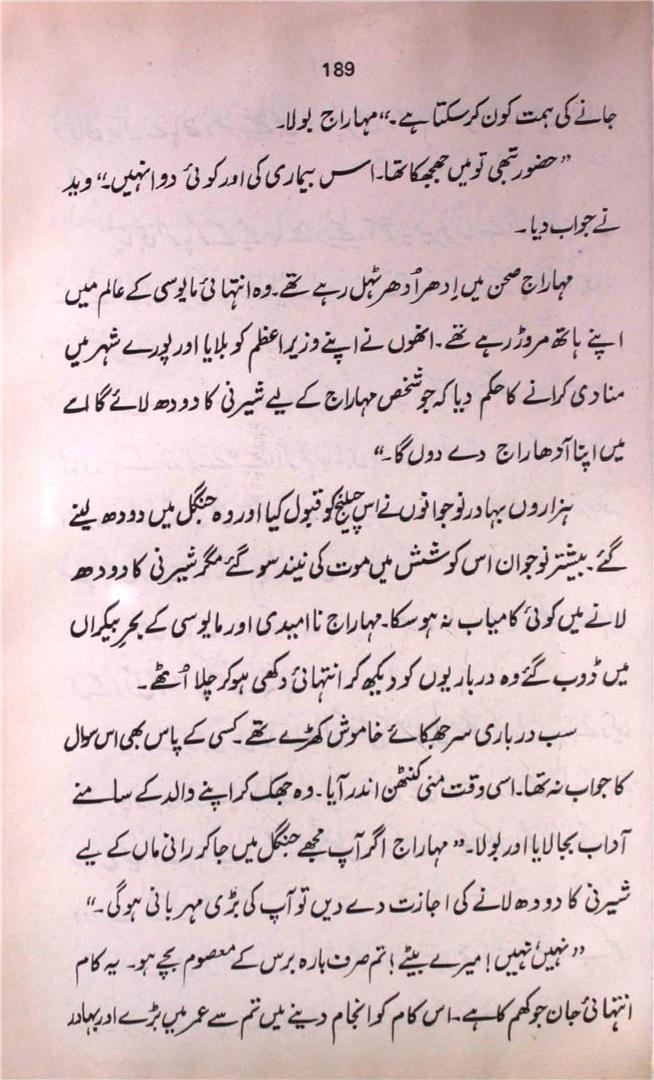 189
جانے کی ہمت کون کر سکتا ہے۔“ مہاراج بولا۔
”حضور تبھی تو میں جھجکا تھا۔ اس بیماری کی اور کوئی دوا نہیں۔“ وید
نے جواب دیا۔
مہاراج صحن میں اِدھر اُدھر ٹہل رہے تھے۔ وہ انتہائی مایوسی کے عالم میں
اپنے ہاتھ مروڑ رہے تھے۔ انھوں نے اپنے وزیراعظم کو بلایا اور پورے شہر میں
منادی کرانے کا حکم دیا کہ جو شخص مہاراج کے لیے شیرنی کا دودھ لائے گا اسے
میں اپنا آدھا راج دے دوں گا۔“
ہزاروں بہادر نوجوانوں نے اس چیلنج کو قبول کیا اور وہ جنگل میں دودھ لینے
گئے۔ بیشتر نوجوان اس کوشش میں موت کی نیند سو گئے مگر شیرنی کا دودھ
لانے میں کوئی کامیاب نہ ہو سکا۔ مہاراج ناامیدی اور مایوسی کے بحرِ بیکراں
میں ڈوب گئے وہ درباریوں کو دیکھ کر انتہائی دکھی ہو کر چلا اُٹھے۔
سب درباری سر جھکائے خاموش کھڑے تھے۔ کسی کے پاس بھی اس سوال
کا جواب نہ تھا۔ اسی وقت منی کنٹھن اندر آیا۔ وہ جھک کر اپنے والد کے سامنے
آداب بجا لایا اور بولا۔ ”مہاراج اگر آپ مجھے جنگل میں جا کر رانی ماں کے لیے
شیرنی کا دودھ لانے کی اجازت دے دیں تو آپ کی بڑی مہربانی ہوگی۔“
”نہیں، نہیں! میرے بیٹے! تم صرف بارہ برس کے معصوم بچے ہو۔ یہ کام
انتہائی جان جوکھم کا ہے۔ اس کام کو انجام دینے میں تم سے عمر میں بڑے اور بہادر